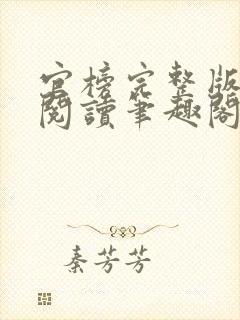 官榜完整版
閱讀筆趣閣
秦芳芳